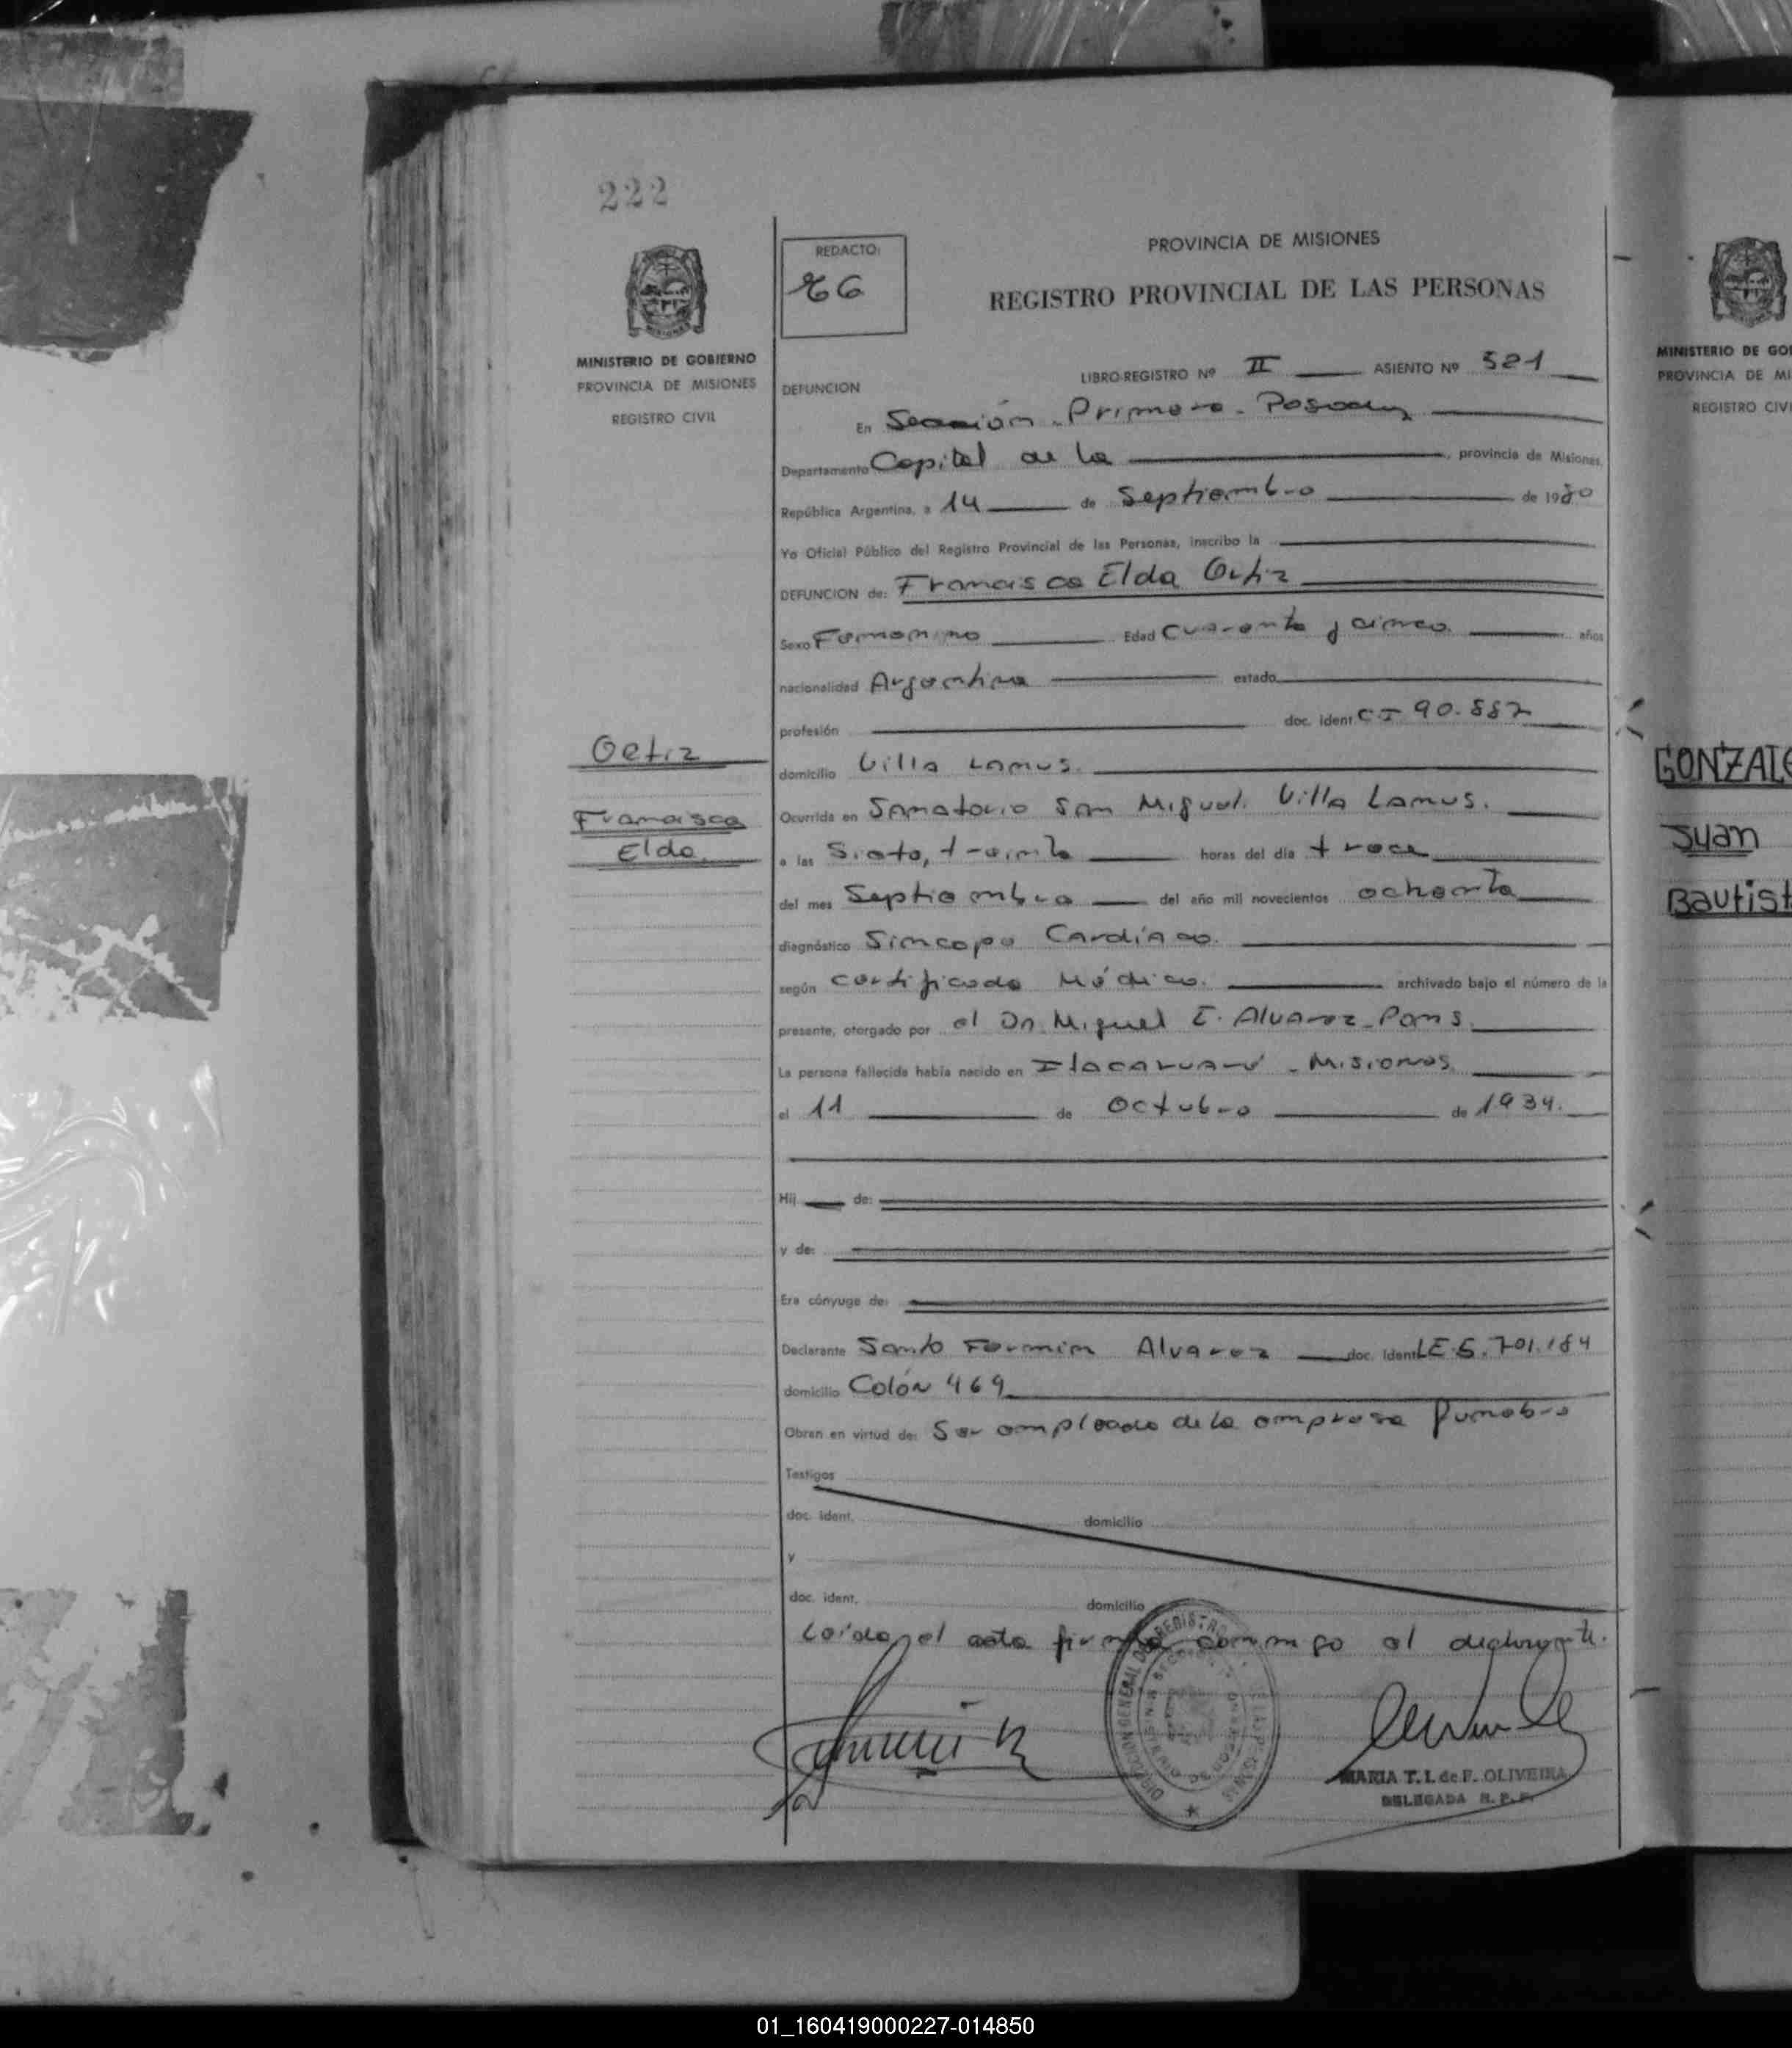 222
REDACTO:
PROVINCIA DE MISIONES
REGISTRO PROVINCIAL DE LAS PERSONAS
MINISTERIO DE GOBIERNO
PROVINCIA DE MISIONES
REGISTRO CIVIL
LIBRO-REGISTRO Nº II ASIENTO Nº 521
DEFUNCION
En Sección Primera - Posadas
Departamento Capital de la , provincia de Misiones,
República Argentina, a 14 de Septiembre de 1980
Yo Oficial Público del Registro Provincial de las Personas, inscribo la
DEFUNCION de: Francisca Elda Ortiz
Sexo Femenino Edad Cuarenta y cinco años
nacionalidad Argentina estado
profesión doc. ident. CI 90.887
Ortiz
Francisca
Elda
domicilio Villa Lanus.
Ocurrida en Sanatorio San Miguel. Villa Lanus.
a las Siete, treinta horas del día trece
del mes Septiembre del año mil novecientos ochenta
diagnóstico Sincope Cardíaco.
según certificado Médico. archivado bajo el número de la
presente, otorgado por el Dr. Miguel E. Alvarez Pons.
La persona fallecida había nacido en Itacaruaré - Misiones
el 11 de Octubre de 1934.
Hij de:
y de:
Era cónyuge de:
Declarante Santo Fermin Alvarez doc. Ident LE 5.701.184
domicilio Colón 469
Obran en virtud de: Ser empleado de la empresa funebre
Testigos
doc. ident. domicilio
y
doc. ident. domicilio
Leída el acta firma conmigo el declarante.
DIRECCION GENERAL DEL REGISTRO
MARIA T. I. de F. OLIVEIRA
DELEGADA R. P. P.
MINISTERIO DE GOBI
PROVINCIA DE MI
REGISTRO CIVI
GONZALE
Juan
Bautist
01_160419000227-014850